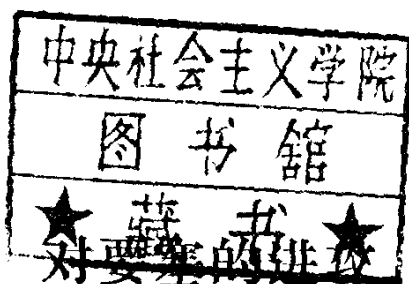 中央社会主义学院
图书馆
★藏书★
对要塞的进攻